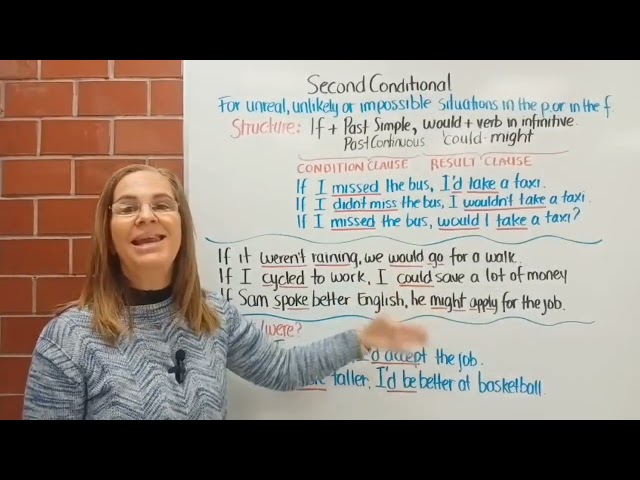 Second Conditional
For unreal, unlikely or impossible situations in the p. or in the f.
Structure: If + Past Simple, would + verb in infinitive.
Past Continuous could-might
CONDITION CLAUSE RESULT CLAUSE
If I missed the bus, I'd take a taxi.
If I didn't miss the bus, I wouldn't take a taxi.
If I missed the bus, would I take a taxi?
If it weren't raining, we would go for a walk.
If I cycled to work, I could save a lot of money
If Sam spoke better English, he might apply for the job.
/were?
I'd accept the job.
taller, I'd be better at basketball.